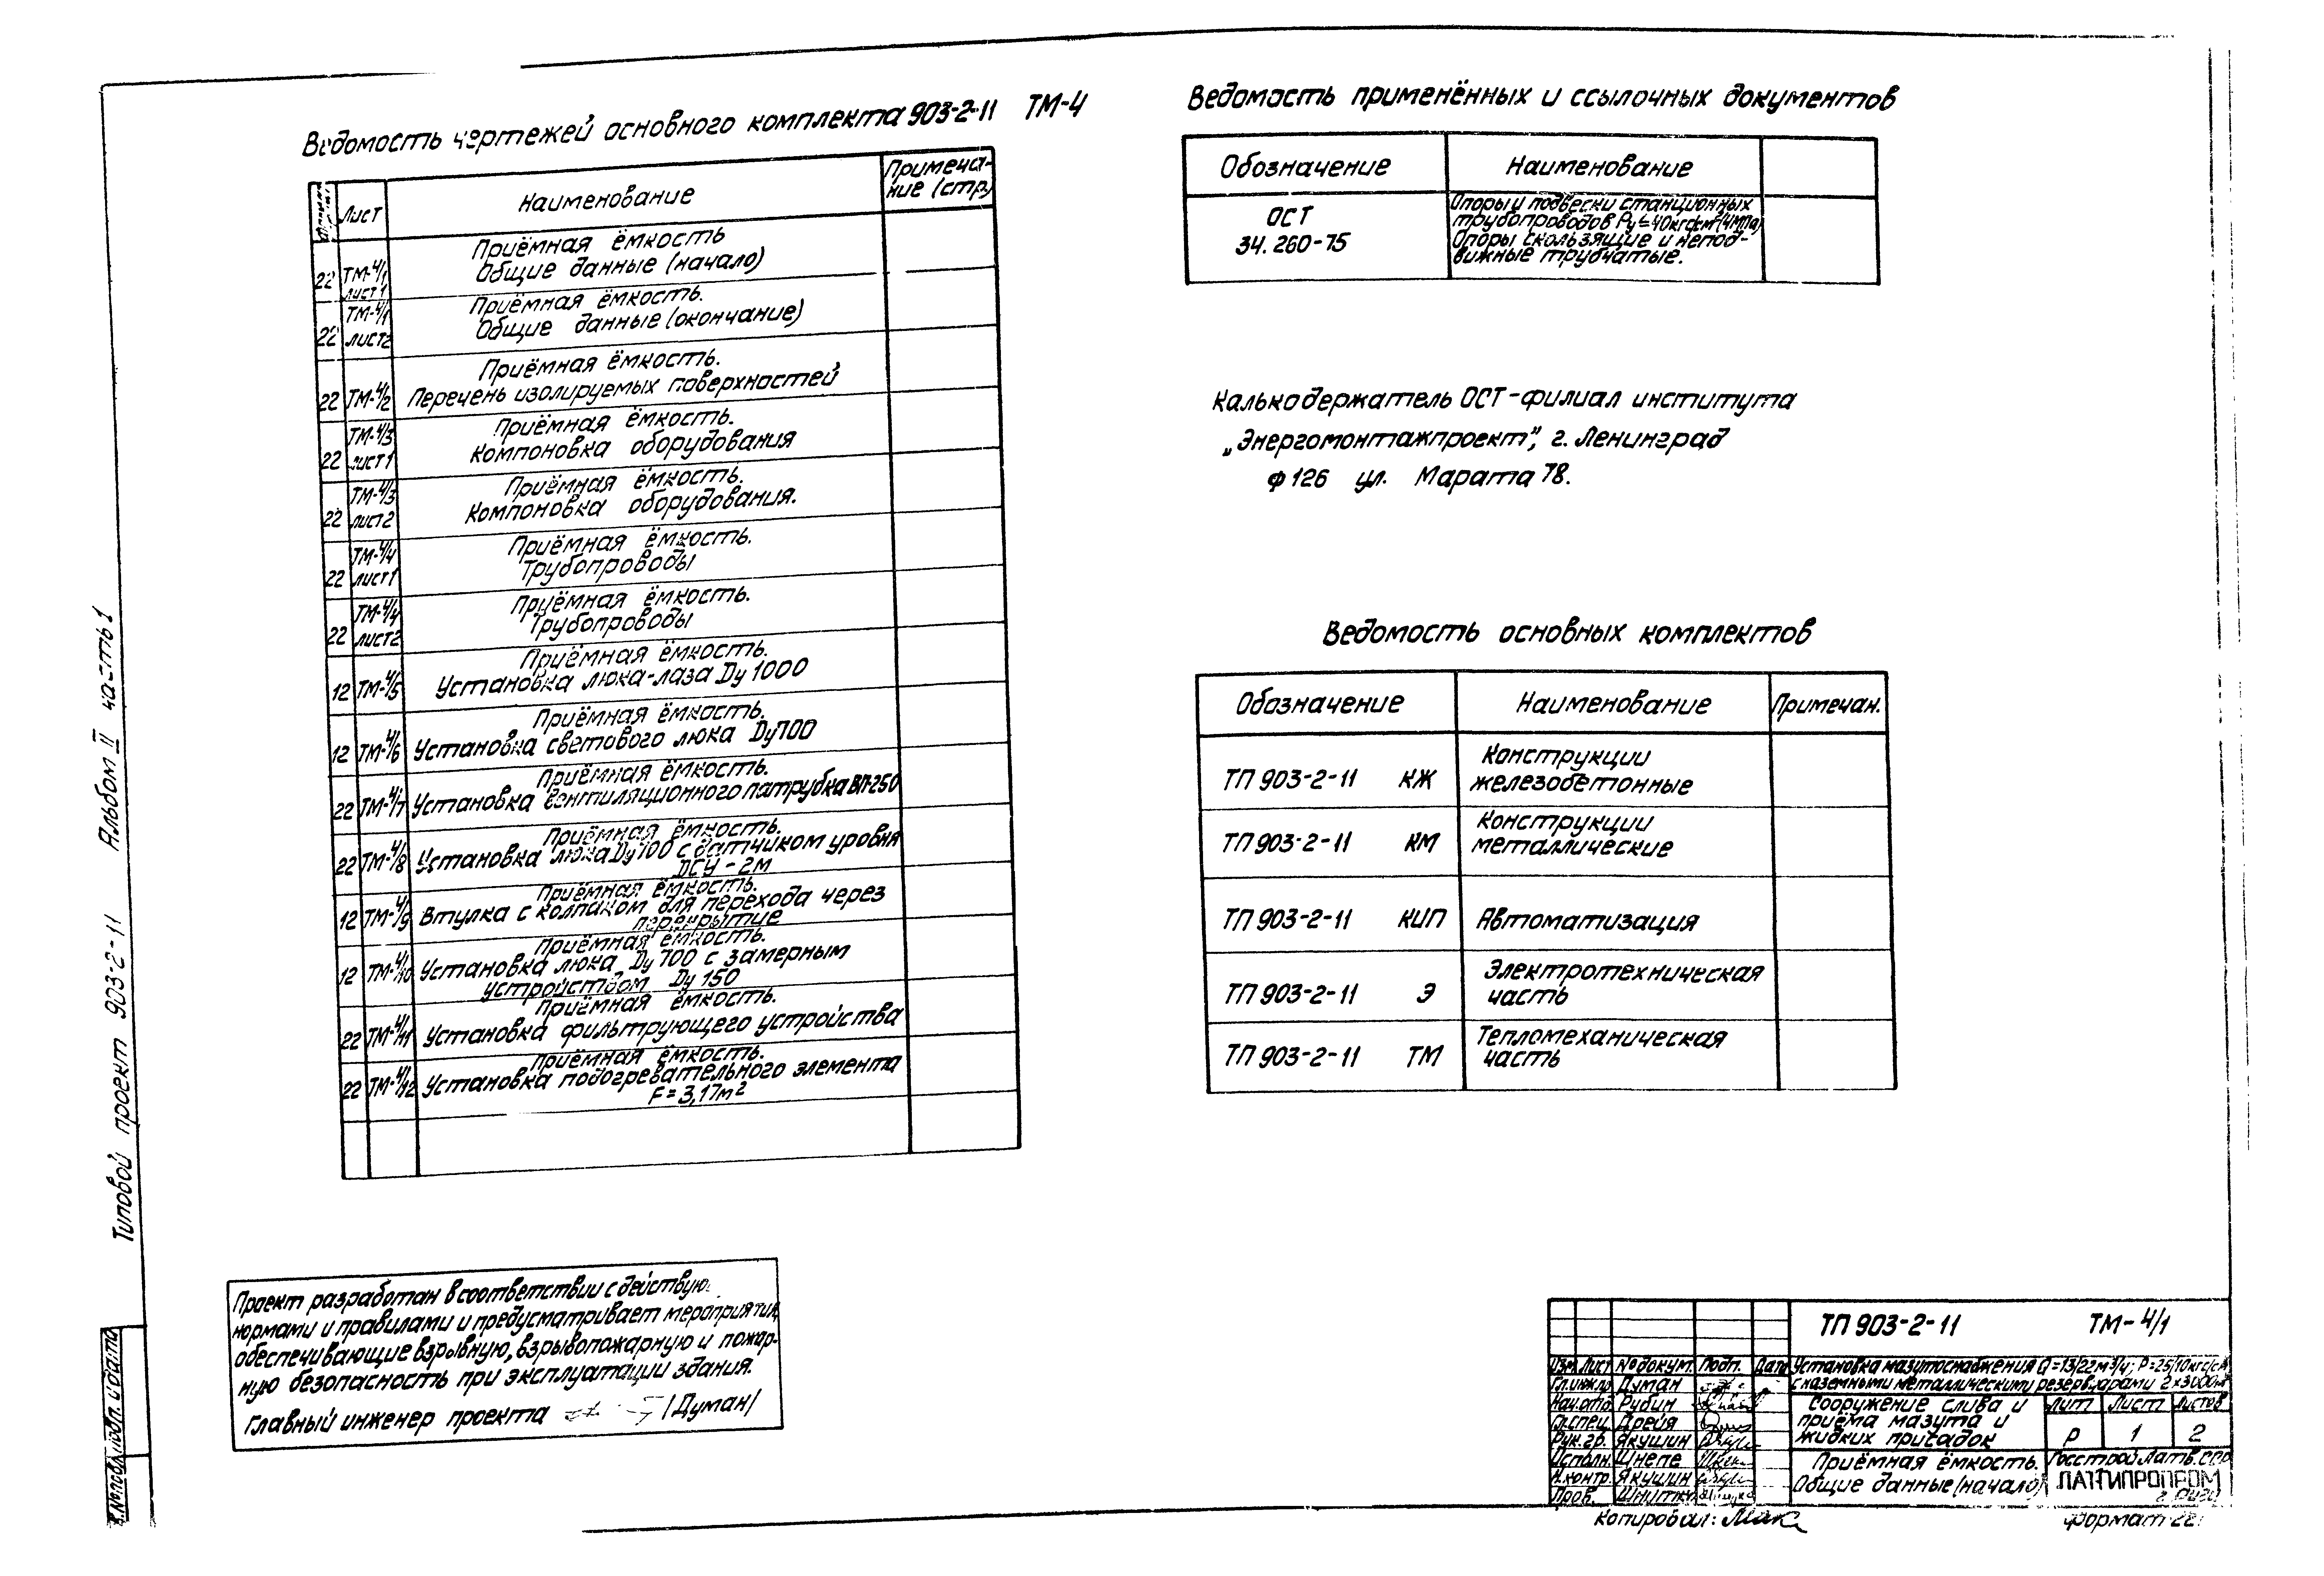 Ведомость чертежей основного комплекта 903-2-11 ТМ-4
Лист
Наименование
Примеча-
ние (стр.)
22 ТМ-4/1 лист 1
Приёмная ёмкость
Общие данные (начало)
22 ТМ-4/1 лист 2
Приёмная ёмкость.
Общие данные (окончание)
22 ТМ-4/2
Приёмная ёмкость.
Перечень изолируемых поверхностей
22 ТМ-4/3 лист 1
Приёмная ёмкость.
Компоновка оборудования
22 ТМ-4/3 лист 2
Приёмная ёмкость.
Компоновка оборудования.
22 ТМ-4/4 лист 1
Приёмная ёмкость.
Трубопроводы
22 ТМ-4/4 лист 2
Приёмная ёмкость.
Трубопроводы
12 ТМ-4/5
Приёмная ёмкость.
Установка люка-лаза Dу 1000
12 ТМ-4/6
Приёмная ёмкость.
Установка светового люка Dу 700
22 ТМ-4/7
Приёмная ёмкость.
Установка вентиляционного патрубка ВП-250
22 ТМ-4/8
Приёмная ёмкость.
Установка люка Dу 700 с датчиком уровня
ДСУ-2м
12 ТМ-4/9
Приёмная ёмкость.
Втулка с колпаком для перехода через
перекрытие
12 ТМ-4/10
Приёмная ёмкость.
Установка люка Dу 700 с замерным
устройством Dу 150
22 ТМ-4/11
Приёмная ёмкость.
Установка фильтрующего устройства
22 ТМ-4/12
Приёмная ёмкость.
Установка подогревательного элемента
F = 3,17м²
Ведомость применённых и ссылочных документов
Обозначение Наименование
ОСТ
34.260-75
Опоры и подвески станционных
трубопроводов Ру≤40кгс/см²(4МПа)
Опоры скользящие и непод-
вижные трубчатые.
Калькодержатель ОСТ-филиал института
„Энергомонтажпроект", г. Ленинград
Ф 126 ул. Марата 78.
Ведомость основных комплектов
Обозначение Наименование Примечан.
ТП 903-2-11 КЖ
Конструкции
железобетонные
ТП 903-2-11 КМ
Конструкции
металлические
ТП 903-2-11 КИП Автоматизация
ТП 903-2-11 Э
Электротехническая
часть
ТП 903-2-11 ТМ
Тепломеханическая
часть
Типовой проект 903-2-11 Альбом II часть 1
Проект разработан в соответствии с действую
нормами и правилами и предусматривает мероприятия,
обеспечивающие взрывную, взрывопожарную и пожар-
ную безопасность при эксплуатации здания.
Главный инженер проекта /Думан/
Подп. и дата
ТП 903-2-11 ТМ-4/1
Изм. Лист № докум. Подп. Дата
Установка мазутоснабжения Q=13/22м³/ч; Р=25/10кгс/см²
с наземными металлическими резервуарами 2×3000м³
Гл.инж.пр Думан
Нач.отд Рубин
Гл.спец. Дрейя
Рук.гр. Якушин
Исполн. Шнепе
Н.контр. Якушин
Пров.
Сооружение слива и
приёма мазута и
жидких присадок
Лит Лист Листов
Р 1 2
Приёмная ёмкость.
Общие данные (начало)
Госстрой Латв.ССР
ЛАТГИПРОПРОМ
г. Рига
Копировал:
Формат 22